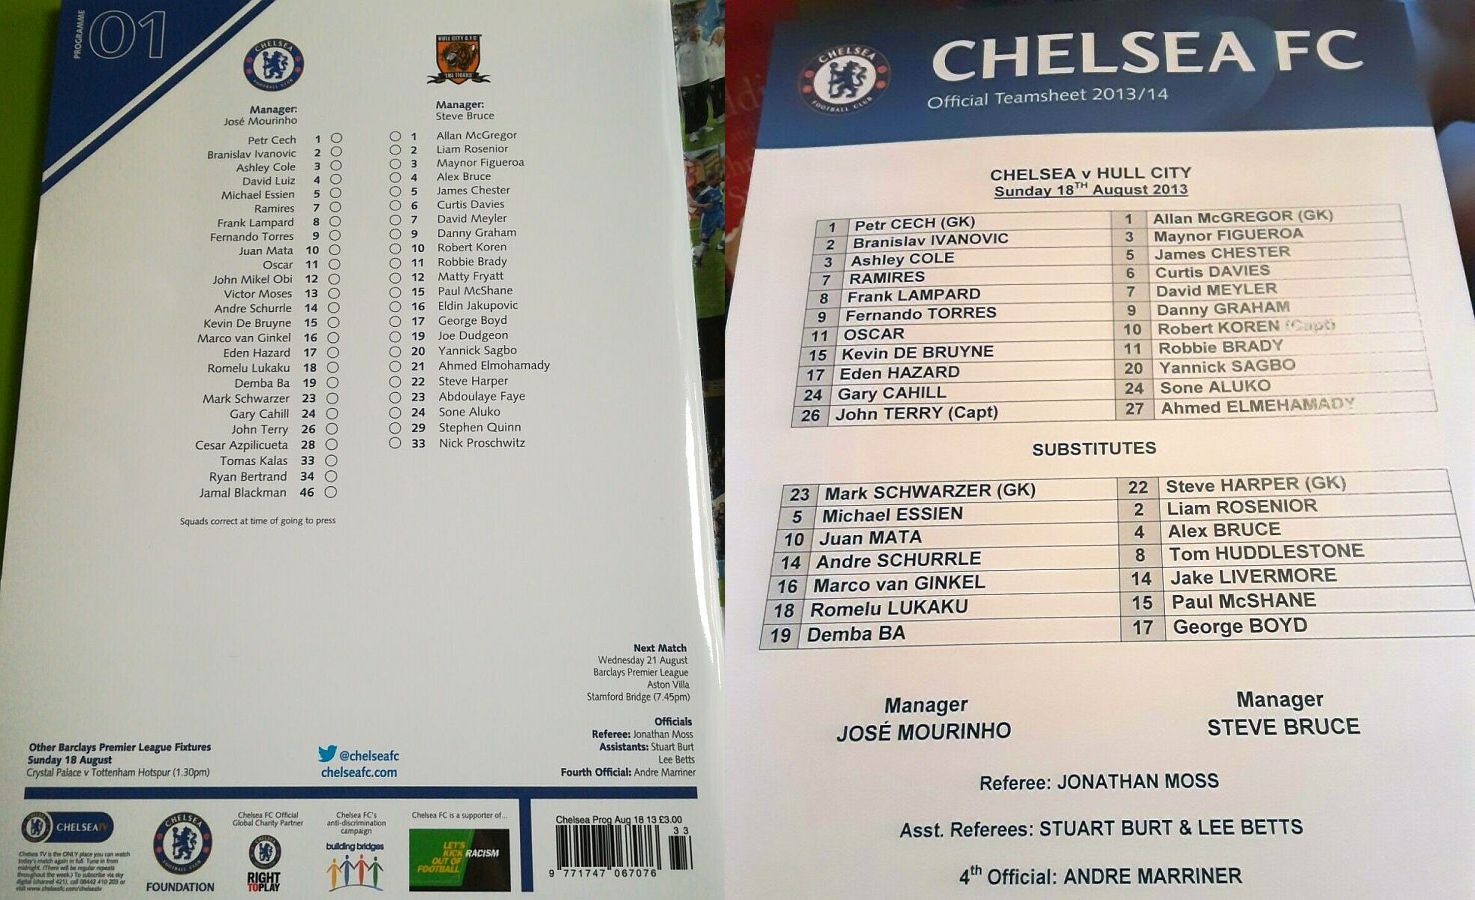 PROGRAMME
01
CHELSEA
FOOTBALL CLUB
HULL CITY A.F.C
THE TIGERS
Manager:
José Mourinho
Petr Cech 1
Branislav Ivanovic 2
Ashley Cole 3
David Luiz 4
Michael Essien 5
Ramires 7
Frank Lampard 8
Fernando Torres 9
Juan Mata 10
Oscar 11
John Mikel Obi 12
Victor Moses 13
Andre Schurrle 14
Kevin De Bruyne 15
Marco van Ginkel 16
Eden Hazard 17
Romelu Lukaku 18
Demba Ba 19
Mark Schwarzer 23
Gary Cahill 24
John Terry 26
Cesar Azpilicueta 28
Tomas Kalas 33
Ryan Bertrand 34
Jamal Blackman 46
Squads correct at time of going to press
Manager:
Steve Bruce
1 Allan McGregor
2 Liam Rosenior
3 Maynor Figueroa
4 Alex Bruce
5 James Chester
6 Curtis Davies
7 David Meyler
9 Danny Graham
10 Robert Koren
11 Robbie Brady
12 Matty Fryatt
15 Paul McShane
16 Eldin Jakupovic
17 George Boyd
19 Joe Dudgeon
20 Yannick Sagbo
21 Ahmed Elmohamady
22 Steve Harper
23 Abdoulaye Faye
24 Sone Aluko
29 Stephen Quinn
33 Nick Proschwitz
Next Match
Wednesday 21 August
Barclays Premier League
Aston Villa
Stamford Bridge (7.45pm)
Officials
Referee: Jonathan Moss
Assistants: Stuart Burt
Lee Betts
Fourth Official: Andre Marriner
Other Barclays Premier League Fixtures
Sunday 18 August
Crystal Palace v Tottenham Hotspur (1.30pm)
@chelseafc
chelseafc.com
CHELSEATV
Chelsea TV is the ONLY place you can watch
today's match again in full. Tune in from
midnight. (There will be regular repeats
throughout the week.) To subscribe via sky
digital (channel 421), call 08442 410 203 or
visit www.chelseafc.com/chelseatv
CHELSEA
FOOTBALL CLUB
FOUNDATION
Chelsea FC Official
Global Charity Partner
RIGHT
TO PLAY
Chelsea FC's
anti-discrimination
campaign
building bridges
Chelsea FC is a supporter of...
LET'S
KICK RACISM
OUT OF
FOOTBALL
Chelsea Prog Aug 18 13 £3.00
33
9 771747 067076
CHELSEA
FOOTBALL CLUB
CHELSEA FC
Official Teamsheet 2013/14
CHELSEA v HULL CITY
Sunday 18TH August 2013
1 Petr CECH (GK) 1 Allan McGREGOR (GK)
2 Branislav IVANOVIC 3 Maynor FIGUEROA
3 Ashley COLE 5 James CHESTER
7 RAMIRES 6 Curtis DAVIES
8 Frank LAMPARD 7 David MEYLER
9 Fernando TORRES 9 Danny GRAHAM
11 OSCAR 10 Robert KOREN (Capt)
15 Kevin DE BRUYNE 11 Robbie BRADY
17 Eden HAZARD 20 Yannick SAGBO
24 Gary CAHILL 24 Sone ALUKO
26 John TERRY (Capt) 27 Ahmed ELMEHAMADY
SUBSTITUTES
23 Mark SCHWARZER (GK) 22 Steve HARPER (GK)
5 Michael ESSIEN 2 Liam ROSENIOR
10 Juan MATA 4 Alex BRUCE
14 Andre SCHURRLE 8 Tom HUDDLESTONE
16 Marco van GINKEL 14 Jake LIVERMORE
18 Romelu LUKAKU 15 Paul McSHANE
19 Demba BA 17 George BOYD
Manager Manager
JOSÉ MOURINHO STEVE BRUCE
Referee: JONATHAN MOSS
Asst. Referees: STUART BURT & LEE BETTS
4th Official: ANDRE MARRINER